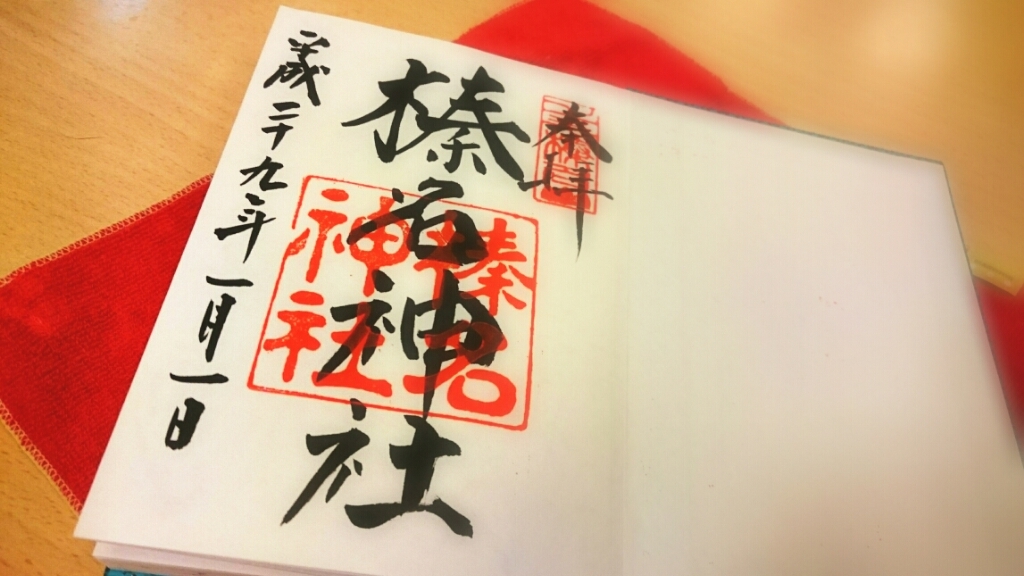 奉拝
榛名神社
榛名神社
平成二十九年一月一日